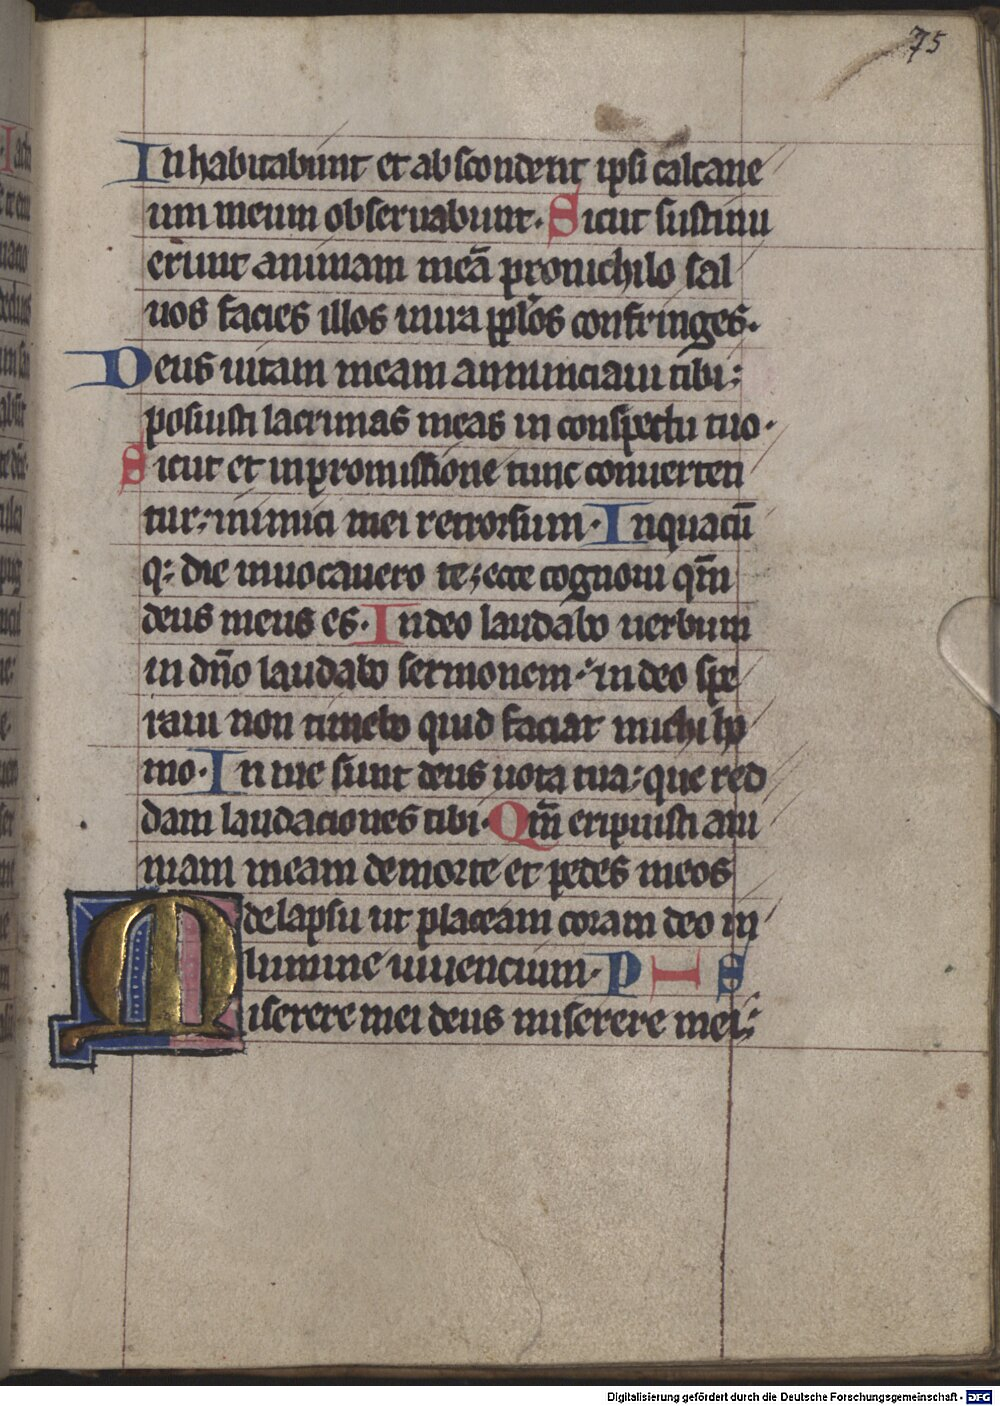 75
Inhabitabunt et abscondent ipsi calcane
um meum obseruabunt. Sicut sustinu
erunt animam meā pronichilo sal
uos facies illos inira pplōs confringes.
Deus uitam meam annunciaui tibi:
posuisti lacrimas meas in conspectu tuo.
Sicut et inpromissione tunc conuerten
tur: inimici mei retrorsum. Inquacū
q: die inuocauero te; ecce cognoui qm̄
deus meus es. Indeo laudabo uerbum
in dn̄o laudabo sermonem: indeo spe
raui non timebo quid faciat michi ho
mo. In me sunt deus uota tua: que red
dam laudaciones tibi. Qm̄ eripuisti ani
mam meam demorte et pedes meos
delapsu ut placeam coram deo in
lumine uiuencium. P I S
Miserere mei deus miserere mei:
Digitalisierung gefördert durch die Deutsche Forschungsgemeinschaft - DFG